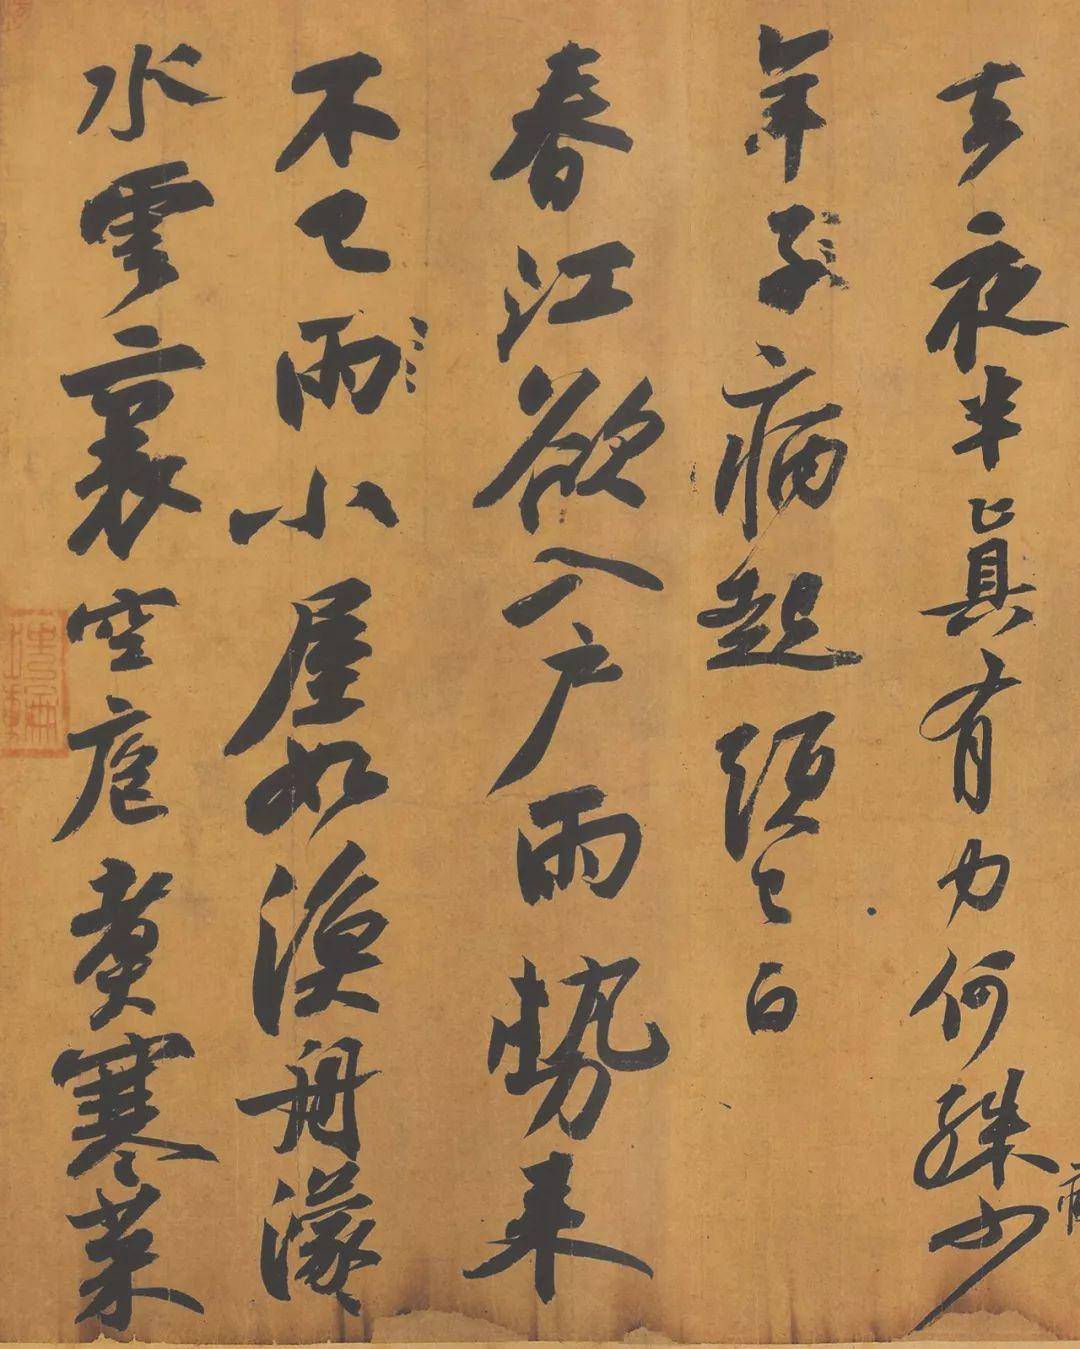 去夜半眞有力何殊少
年子病起頭已白
春江欲入戶雨勢來
不已雨小屋如漁舟濛々
水雲裏空庖煮寒菜